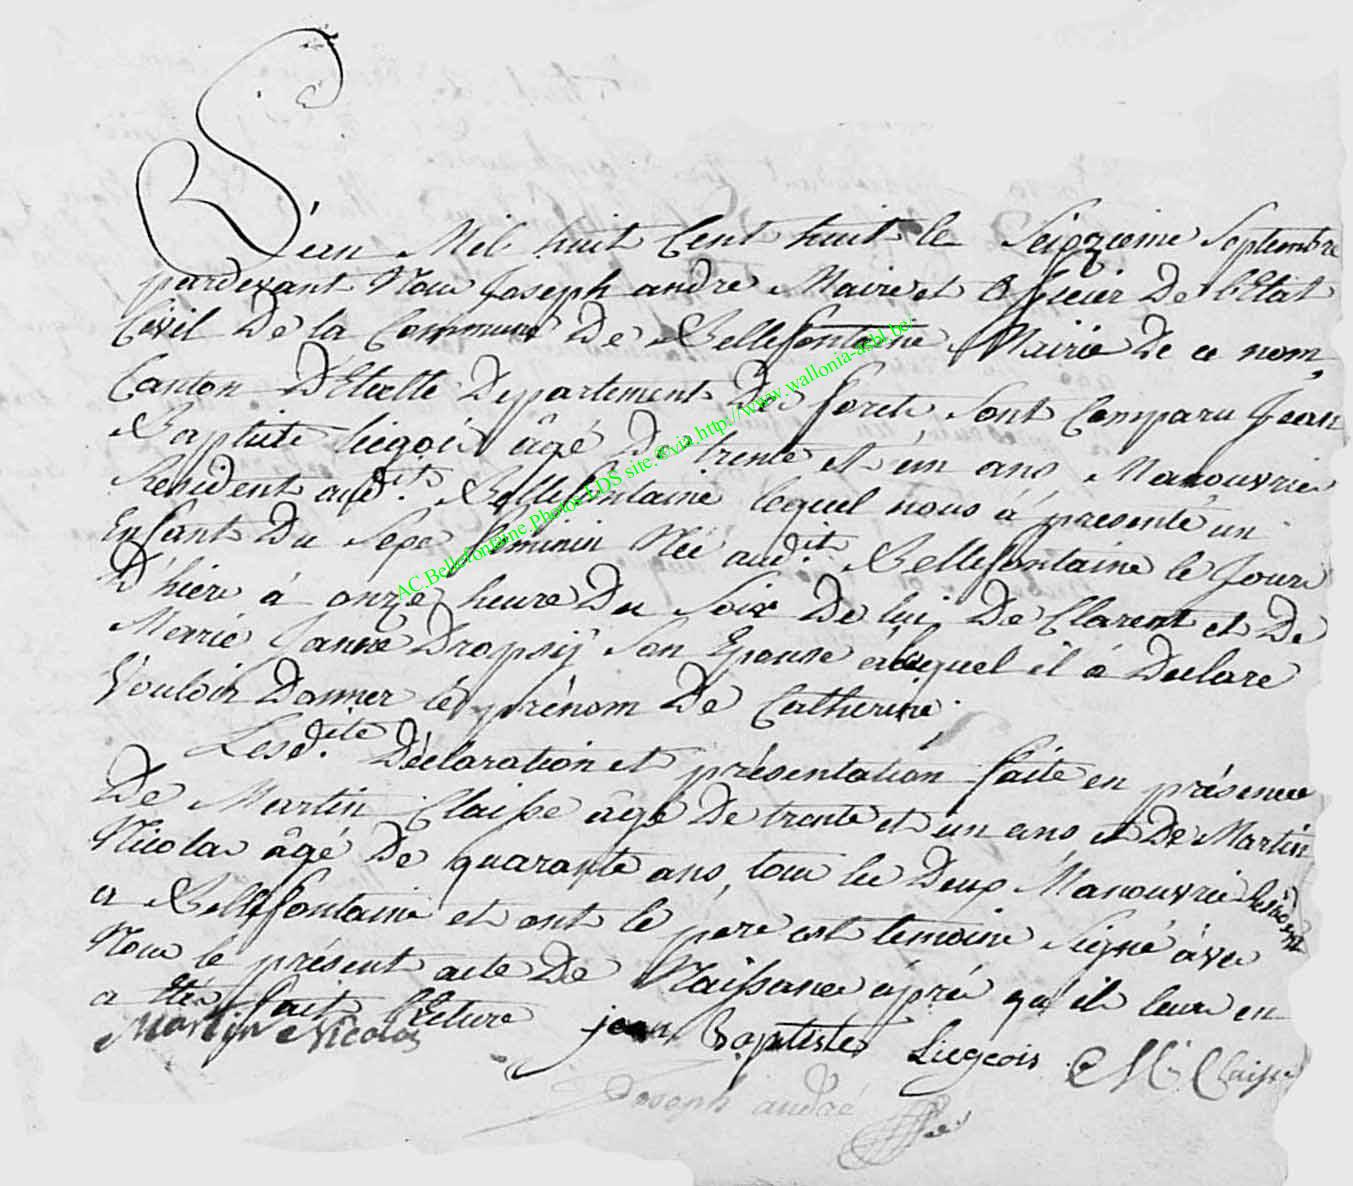 L'éan Mil huit Cent huit le Seizieme Septembre
pardevant Nou Joseph andre Maire et officier De l'Etat
Civil De la Commune De Bellefontaine Mairie De ce nom,
Canton D'Etalle Departement De foret sont Comparu Jean
Baptiste liégoi âgé De trente et un ans Manouvrie
Resident aud.it Bellefontaine lequel nous a presenté un
Enfant Du Sexe feminin Née aud.it Bellefontaine le Jour
D'hier à onze heure Du Soir De lui De Clarent et De
Marie Janne Dropsÿ Son Epouse auquel il á Declare
Vouloir Donner le prénom De Catherine;
Lesd.ite Déclaration et présentation faite en présence
De Martin Claisse âge De trente et un ans et De Martin
Nicola âgé De quarante ans, tou le Deux Manouvrie
a Bellefontaine et ont le pere est temoins Signé âvec
Nou le présent acte De Naissance áprè qu'il leur en
a Eté fait lecture
Martin Nicolas jean Baptiste Liegeois M. Claisse
Joseph andré
AC.Bellefontaine.Photos LDS site.®via.http://www.wallonia-asbl.be/